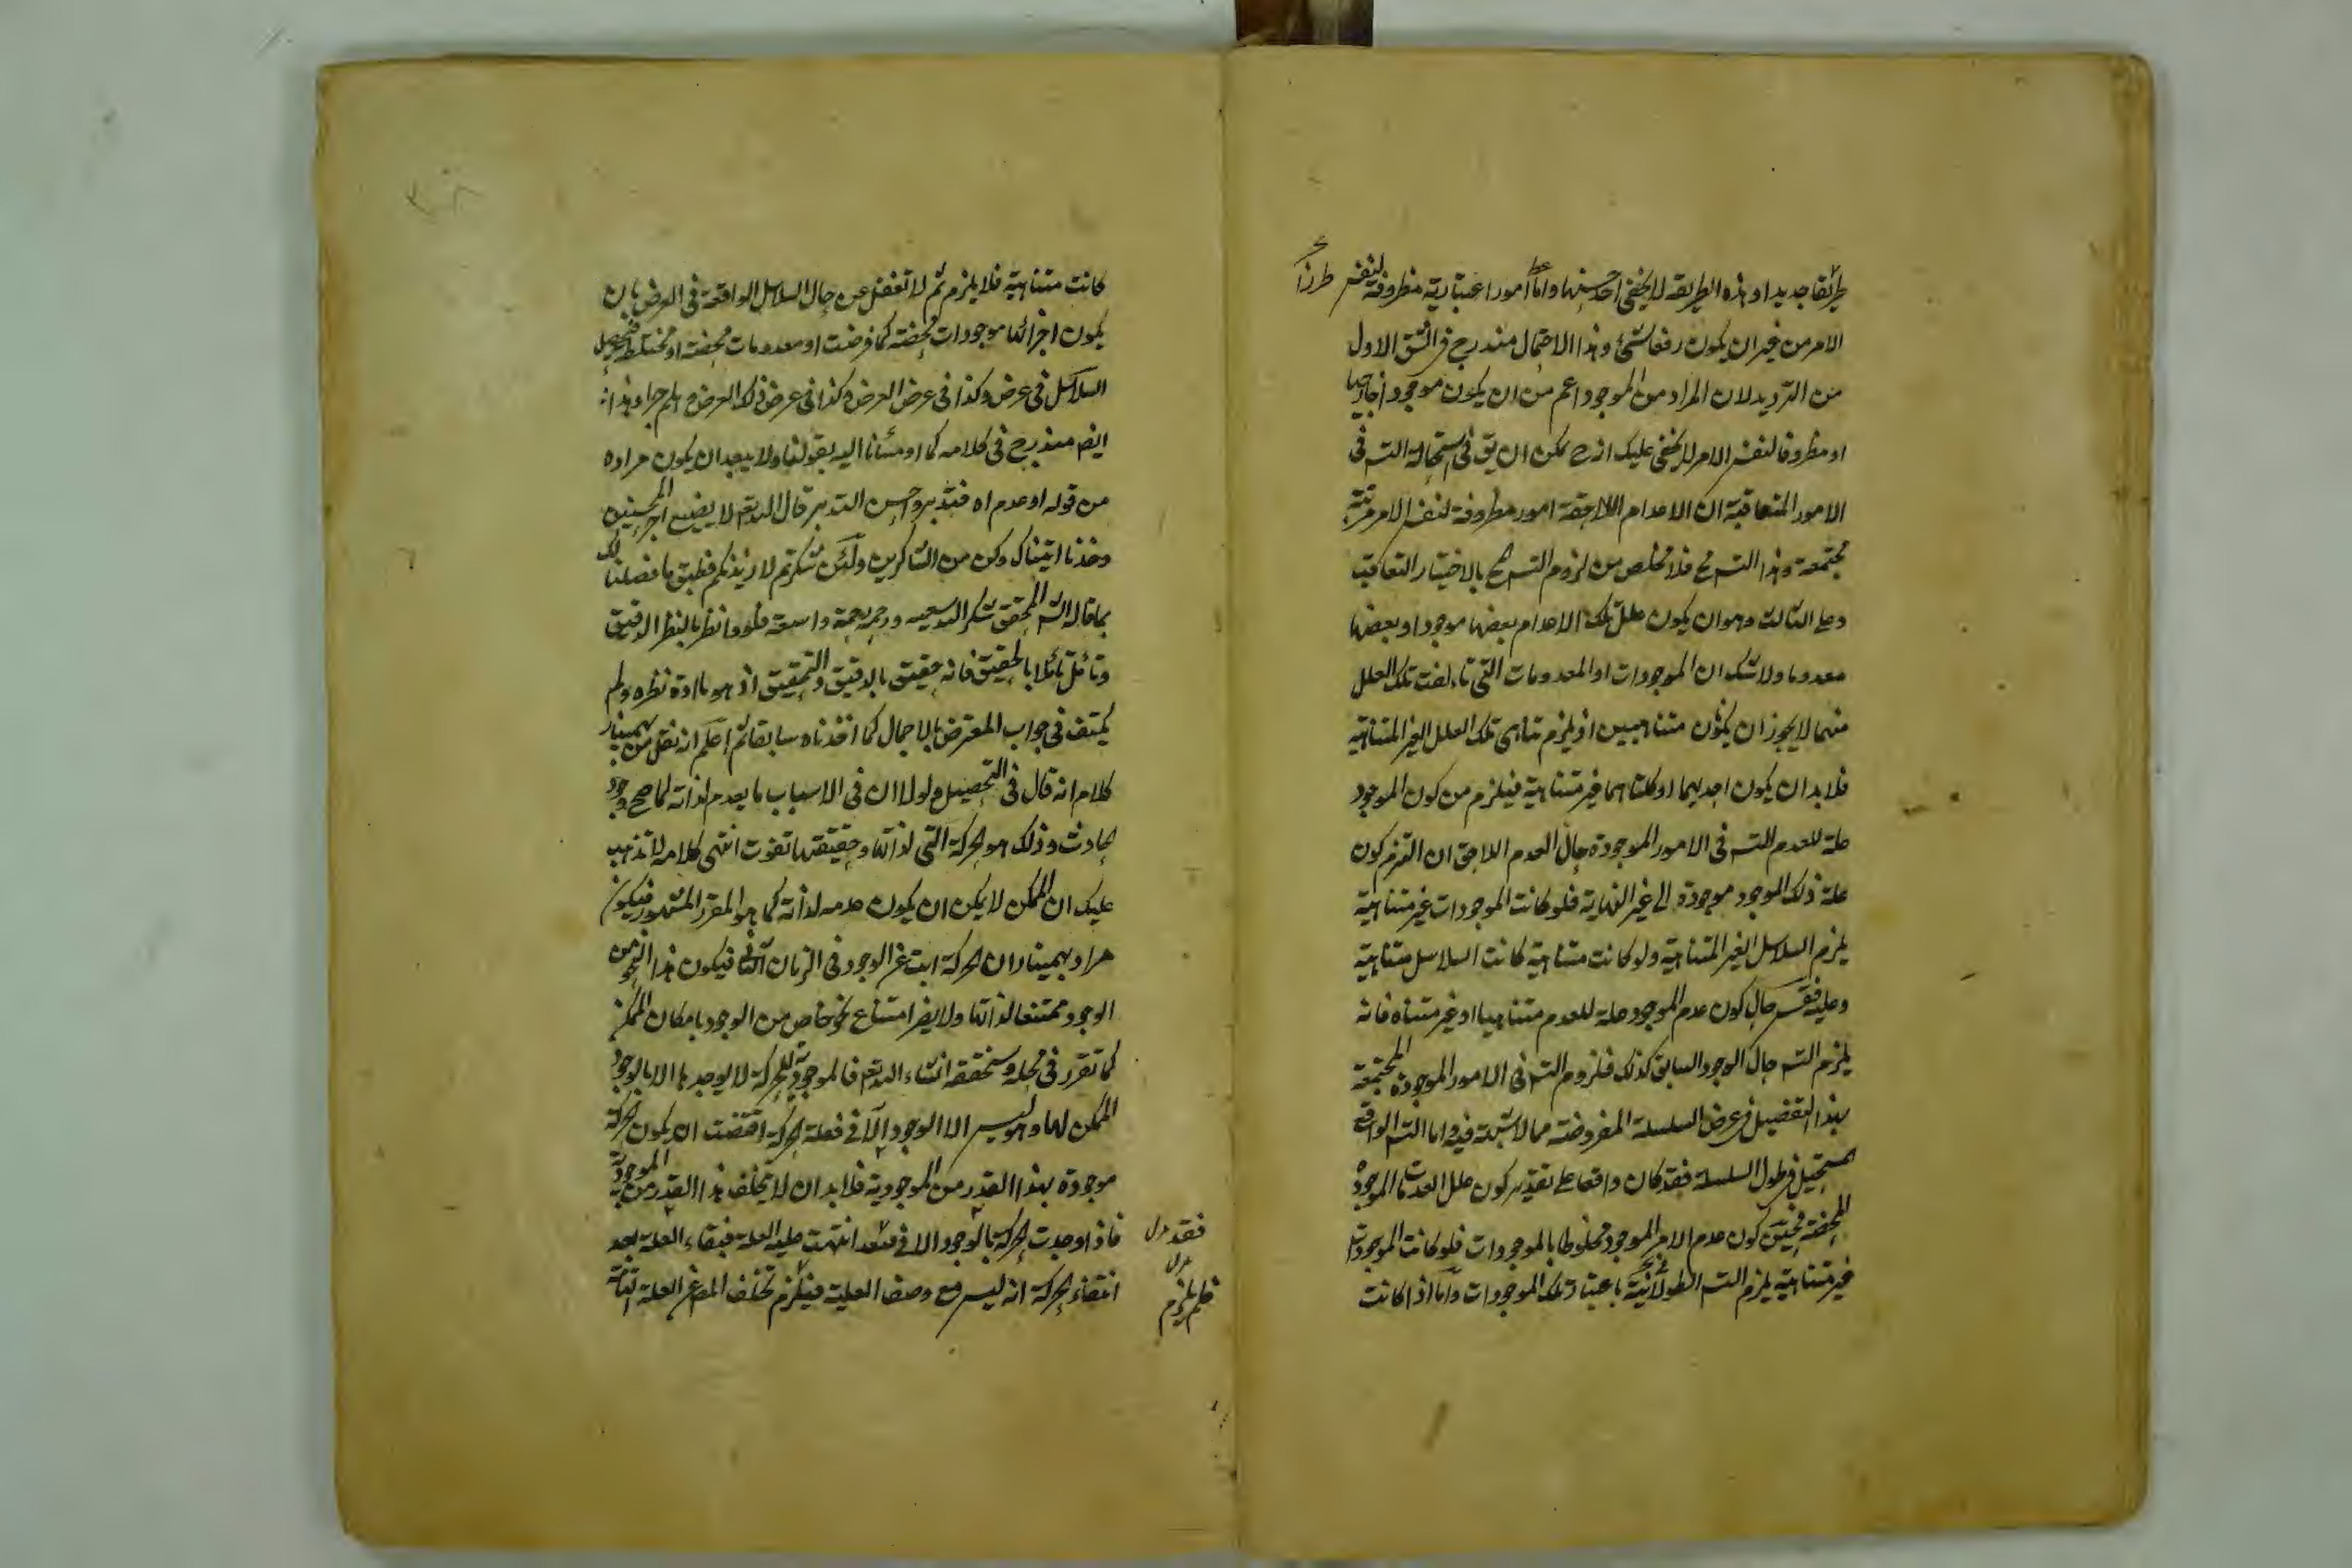 طريقا جديدا وهذه الطريقة لا يخفى احسنها واما امورا اعتبارية مظروفة لنفس
طرزا
الامر من غير ان يكون رفعا لشئ وهذا الاحتمال مندرج فى الشق الاول
من الترديد لان المراد من الموجود اعم من ان يكون موجودا خارجيا
او مظروفا لنفس الامر لا يخفى عليك انه ح يمكن ان يق فى استحالة التس فى
الامور المتعاقبة ان الاعدام اللاحقة امور مظروفة لنفس الامر مرتبة
مجتمعة وهذا التس مح فلا مخلص من لزوم التس المح بالاختيار التعاقب
وعلى الثالث وهو ان يكون علل تلك الاعدام بعضها موجودا وبعضها
معدوما ولا شك ان الموجودات او المعدومات التى تالفت تلك العلل
منهما لا يجوز ان يكون متناهيين اذ يلزم تناهى تلك العلل الغير المتناهية
فلا بد ان يكون احديهما او كلتاهما غير متناهية فيلزم من كون الموجود
علة للعدم التس فى الامور الموجودة حال العدم اللاحق ان التزم كون
علة ذلك الموجود موجودة الى غير النهاية فلو كانت الموجودات غير متناهية
يلزم السلاسل الغير المتناهية ولو كانت متناهية كانت السلاسل متناهية
وعليه فقس حال كون عدم الموجود علة للعدم متناهيا او غير متناه فانه
يلزم التس حال الوجود السابق كذلك فلزوم التس فى الامور الموجودة المجتمعة
بهذا التفصيل فى عرض السلسلة المفروضة مما لا شبهة فيه واما التس الواقع
المستحيل فى طول السلسلة فقد كان واقعا على تقدير كون علل العدمات الموجودة
المحضة فحينئذ كون عدم الامر الموجود مخلوطا بالموجودات فلو كانت الموجودات
غير متناهية يلزم التس الطولانية باعتبار تلك الموجودات واما اذا كانت
كانت متناهية فلا يلزم ثم لا تغفل عن حال السلاسل الواقعة فى العرض بان
يكون اجزائها موجودات محضة كما فرضت او معدومات محضة او مختلطة فتحصل
السلاسل فى عرض وكذا فى عرض العرض وكذا فى عرض ذلك العرض وهلم جرا وهذا
ايضا مندرج فى كلامه كما اومئنا اليه بقولنا ولا يبعد ان يكون مراده
من قوله او عدم اه فتدبر واحسن التدبر فان الله تعم لا يضيع اجر المحسنين
وخذ ما اتيناك وكن من الشاكرين ولئن شكرتم لازيدنكم فطبق ما فصلنا لك
بما قاله الش المحقق شكر الله سعيه ورحمه رحمة واسعة فلو وانظر بالنظر الدقيق
وتامل تاملا بالحقيق فانه حقيق بالدقيق والتحقيق اذ هو ما ادة نظره ولم
يكتف فى جواب المعترض بالاجمال كما اخذناه سابقا ثم اعلم انه نقل من بهمنيار
كلام انه قال فى التحصيل ولولا ان فى الاسباب ما يعدم لذاته لما صح وجود
الحادث وذلك هو الحركة التى لذاتها وحقيقتها تفوت انتهى كلامه لا تذهب
عليك ان الممكن لا يمكن ان يكون عدمه لذاته كما هو المقرر المشهور فيكون
مراد بهمنيار ان الحركة ابت عن الوجود فى الزمان الثانى فيكون هذا النحو من
الوجود ممتنعا لذاتها ولا يضر امتناع نحو خاص من الوجود بامكان الممكن
كما تقرر فى محله وسنحققه انشاء الله تعم فالموجودية للحركة لا يوجد بها الا بالوجود
الممكن لها وهو ليس الا الوجود الآنى فعلة الحركة اقتضت ان يكون الحركة
موجودة بهذا القدر من الموجودية فلا بد ان لا يتخلف هذا القدر من الموجودية
فاذا وجدت الحركة بالوجود الانى فقد انتهت عليه العلة فبقاء العلة بعد
انتفاء الحركة انه ليس مع وصف العلية فيلزم تخلف المع عن العلة التامة
فقد بدل
بدل
فلم يلزم